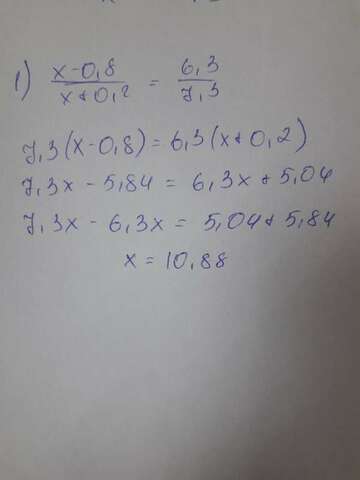 1) (x-0,8)/(x+0,2) = 6,3/7,3
7,3(x-0,8)=6,3(x+0,2)
7,3x - 5,84 = 6,3x + 5,04
7,3x - 6,3x = 5,04 + 5,84
x = 10,88